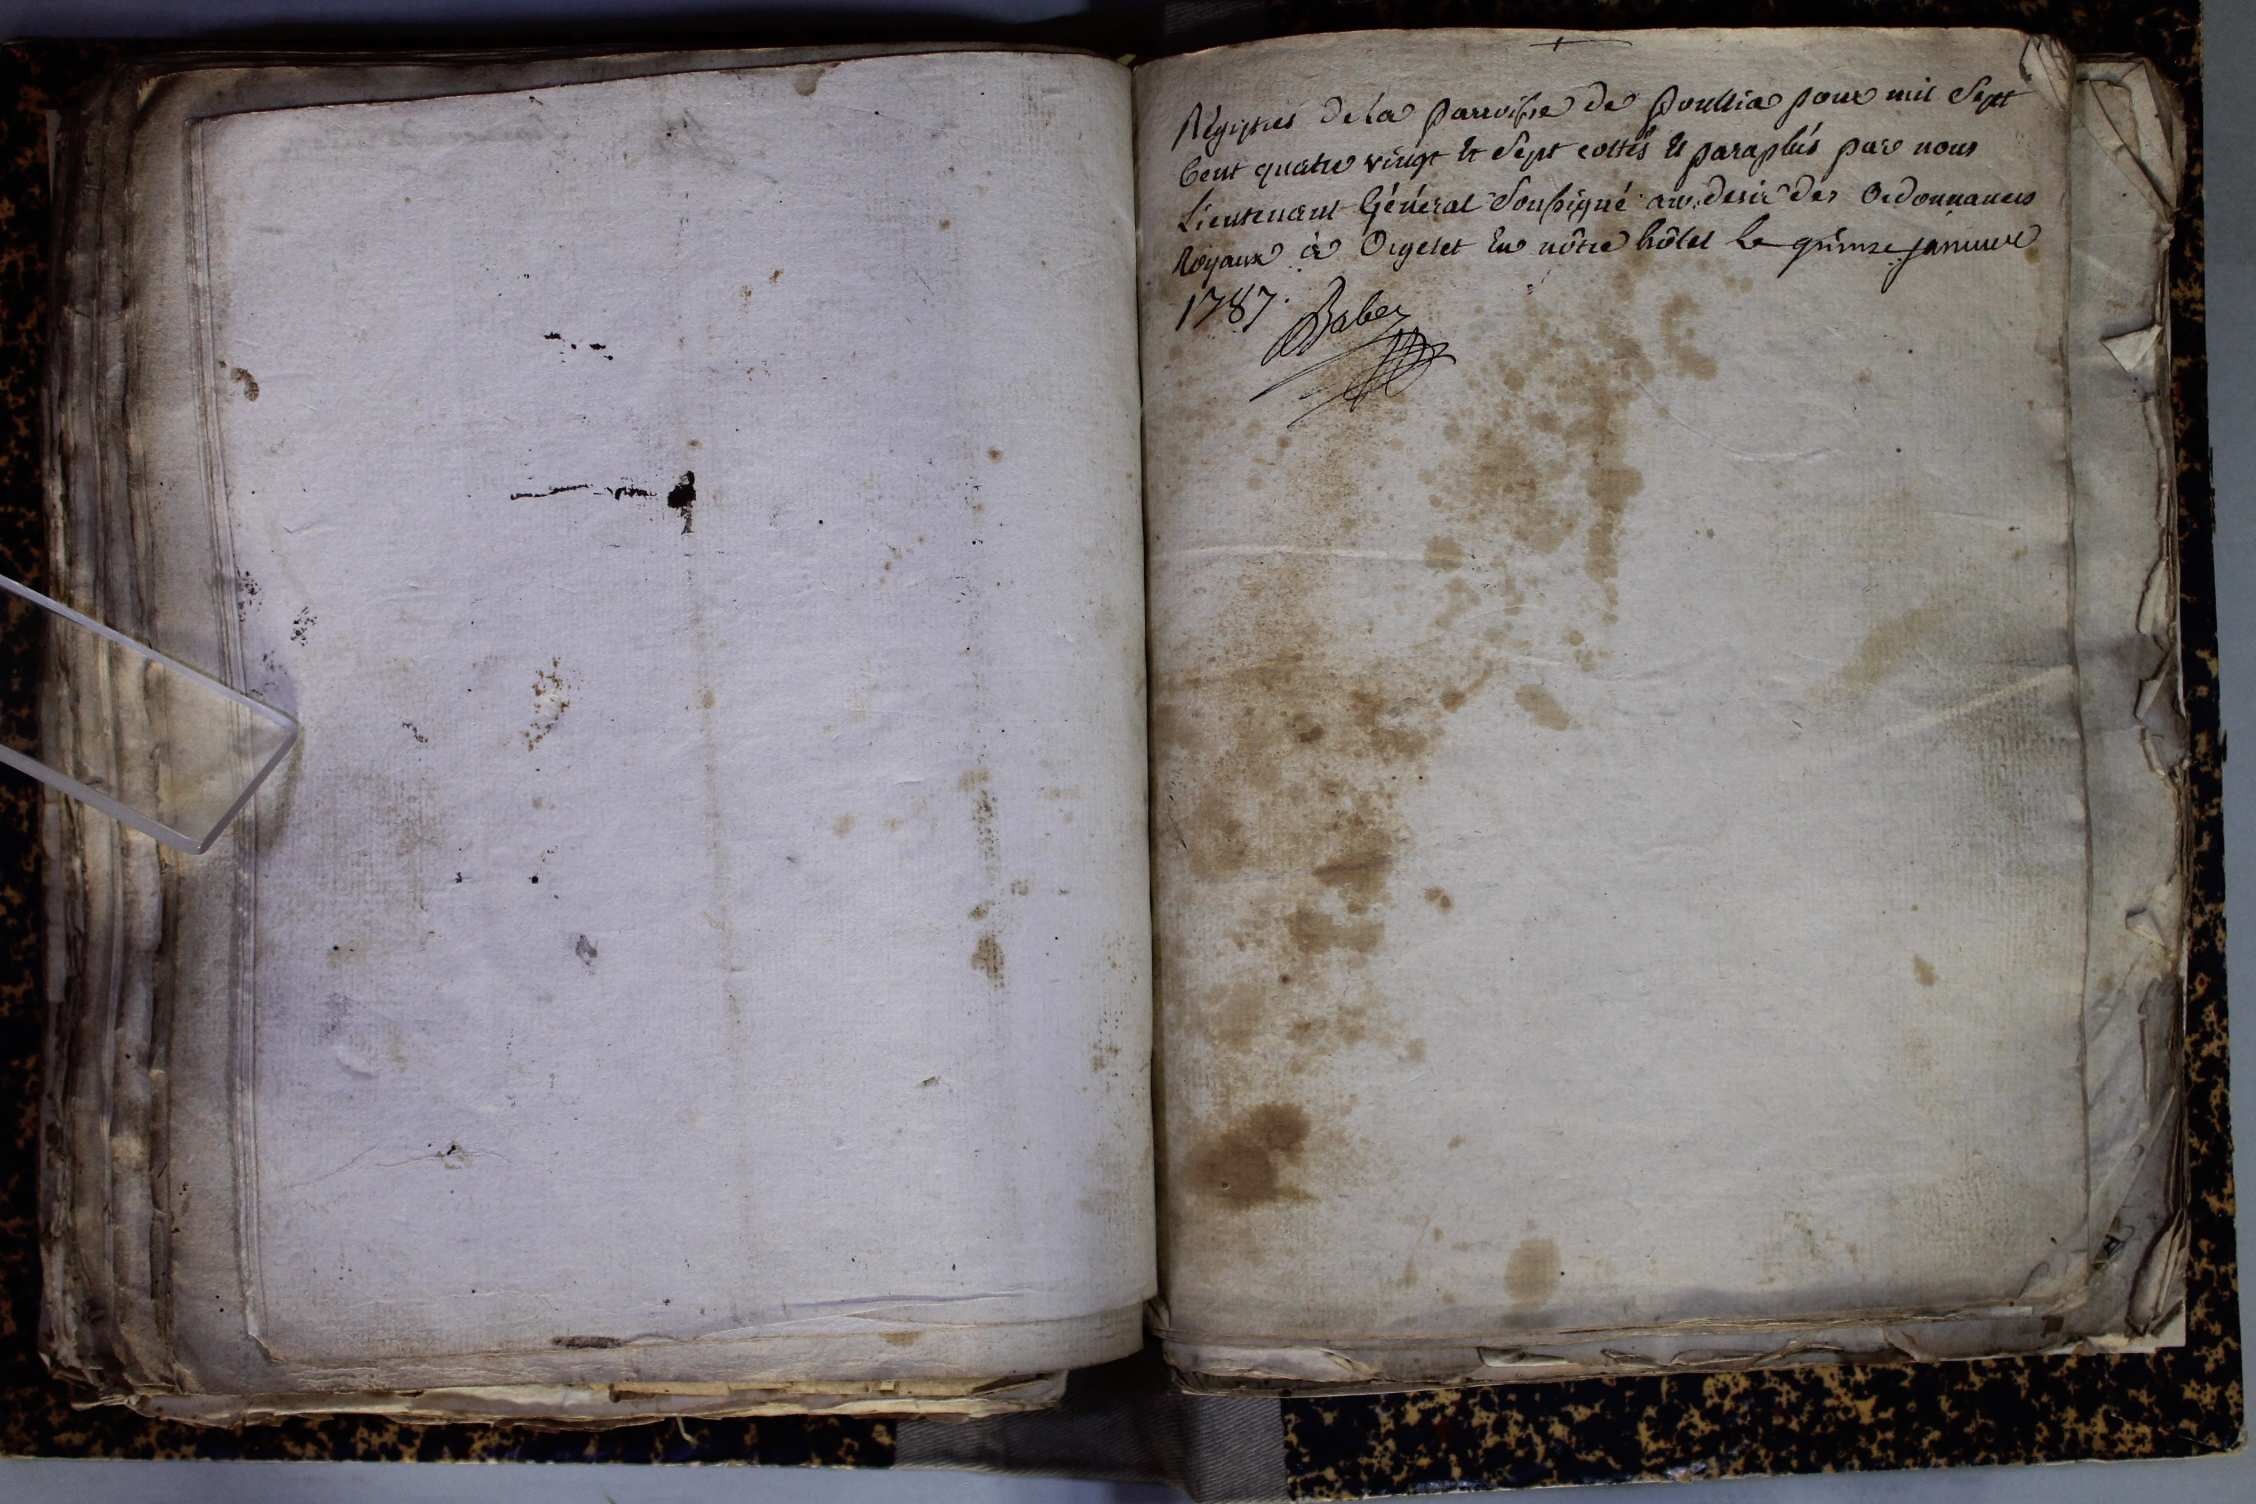 Régistres de la parroisse de poullia pour mil Sept
Cent quatre vingt et Sept cottés et paraphés par nous
Lieutenant Général Soussigné au desir des Ordonnances
Royaux à Orgelet En nôtre hôtel le quinze janvier
1787. Babey